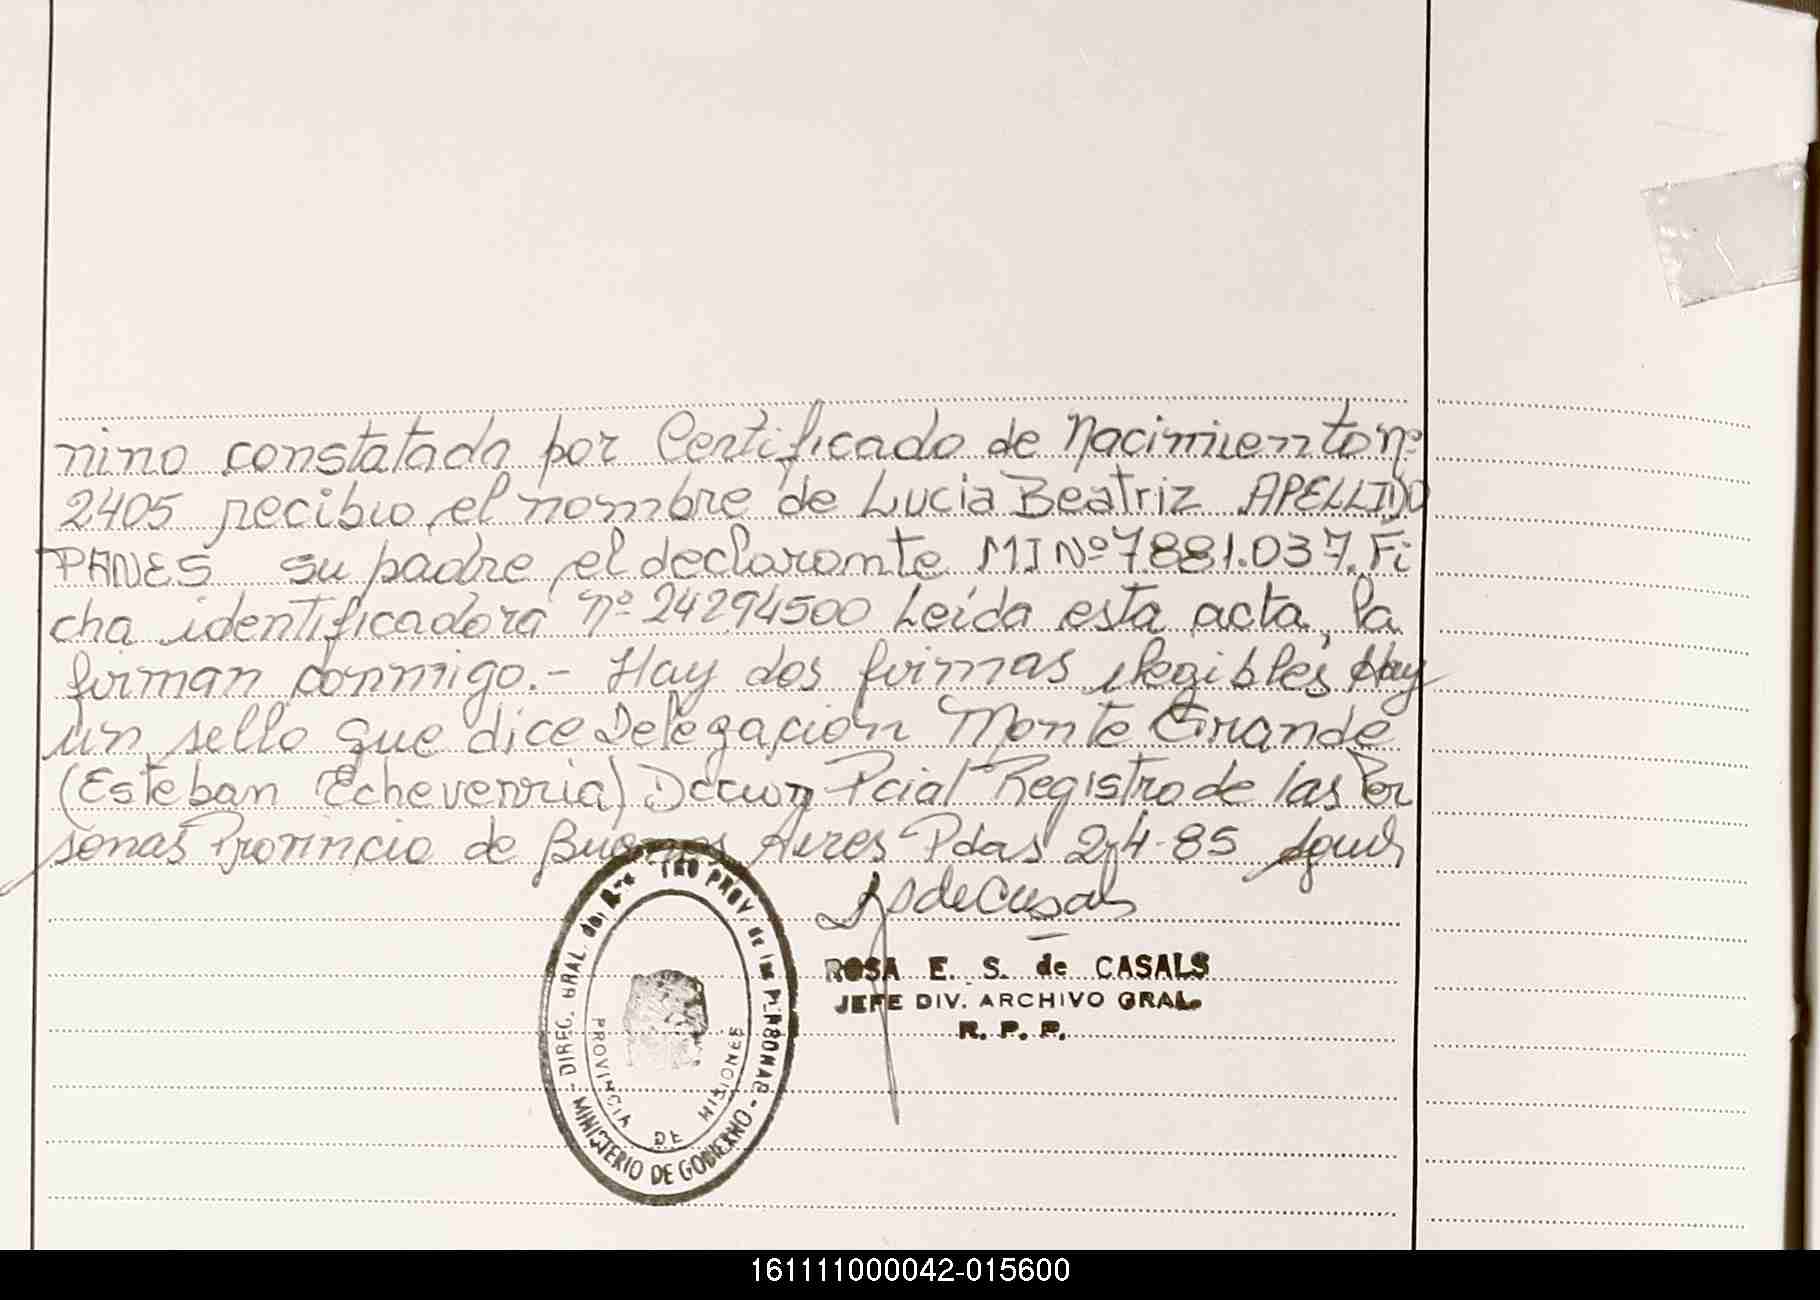 nino constatado por Certificado de Nacimiento nº
2405 recibio el nombre de Lucia Beatriz APELLIDO
PANES su padre el declarante MI Nº 7881.037. Fi
cha identificadora nº 24294500 Leida esta acta, la
firman conmigo.- Hay dos firmas ilegibles Hay
un sello que dice Delegación Monte Grande
(Esteban Echeverria) Pcial Registro de las Per
sonas Provincia de Buenos Aires Pdas 2-4-85
ROSA E. S. de CASALS
JEFE DIV. ARCHIVO GRAL.
R. P. P.
DIREC. GRAL. del PROV. de las PERSONAS
MINISTERIO DE GOBIERNO
PROVINCIA DE MISIONES
161111000042-015600